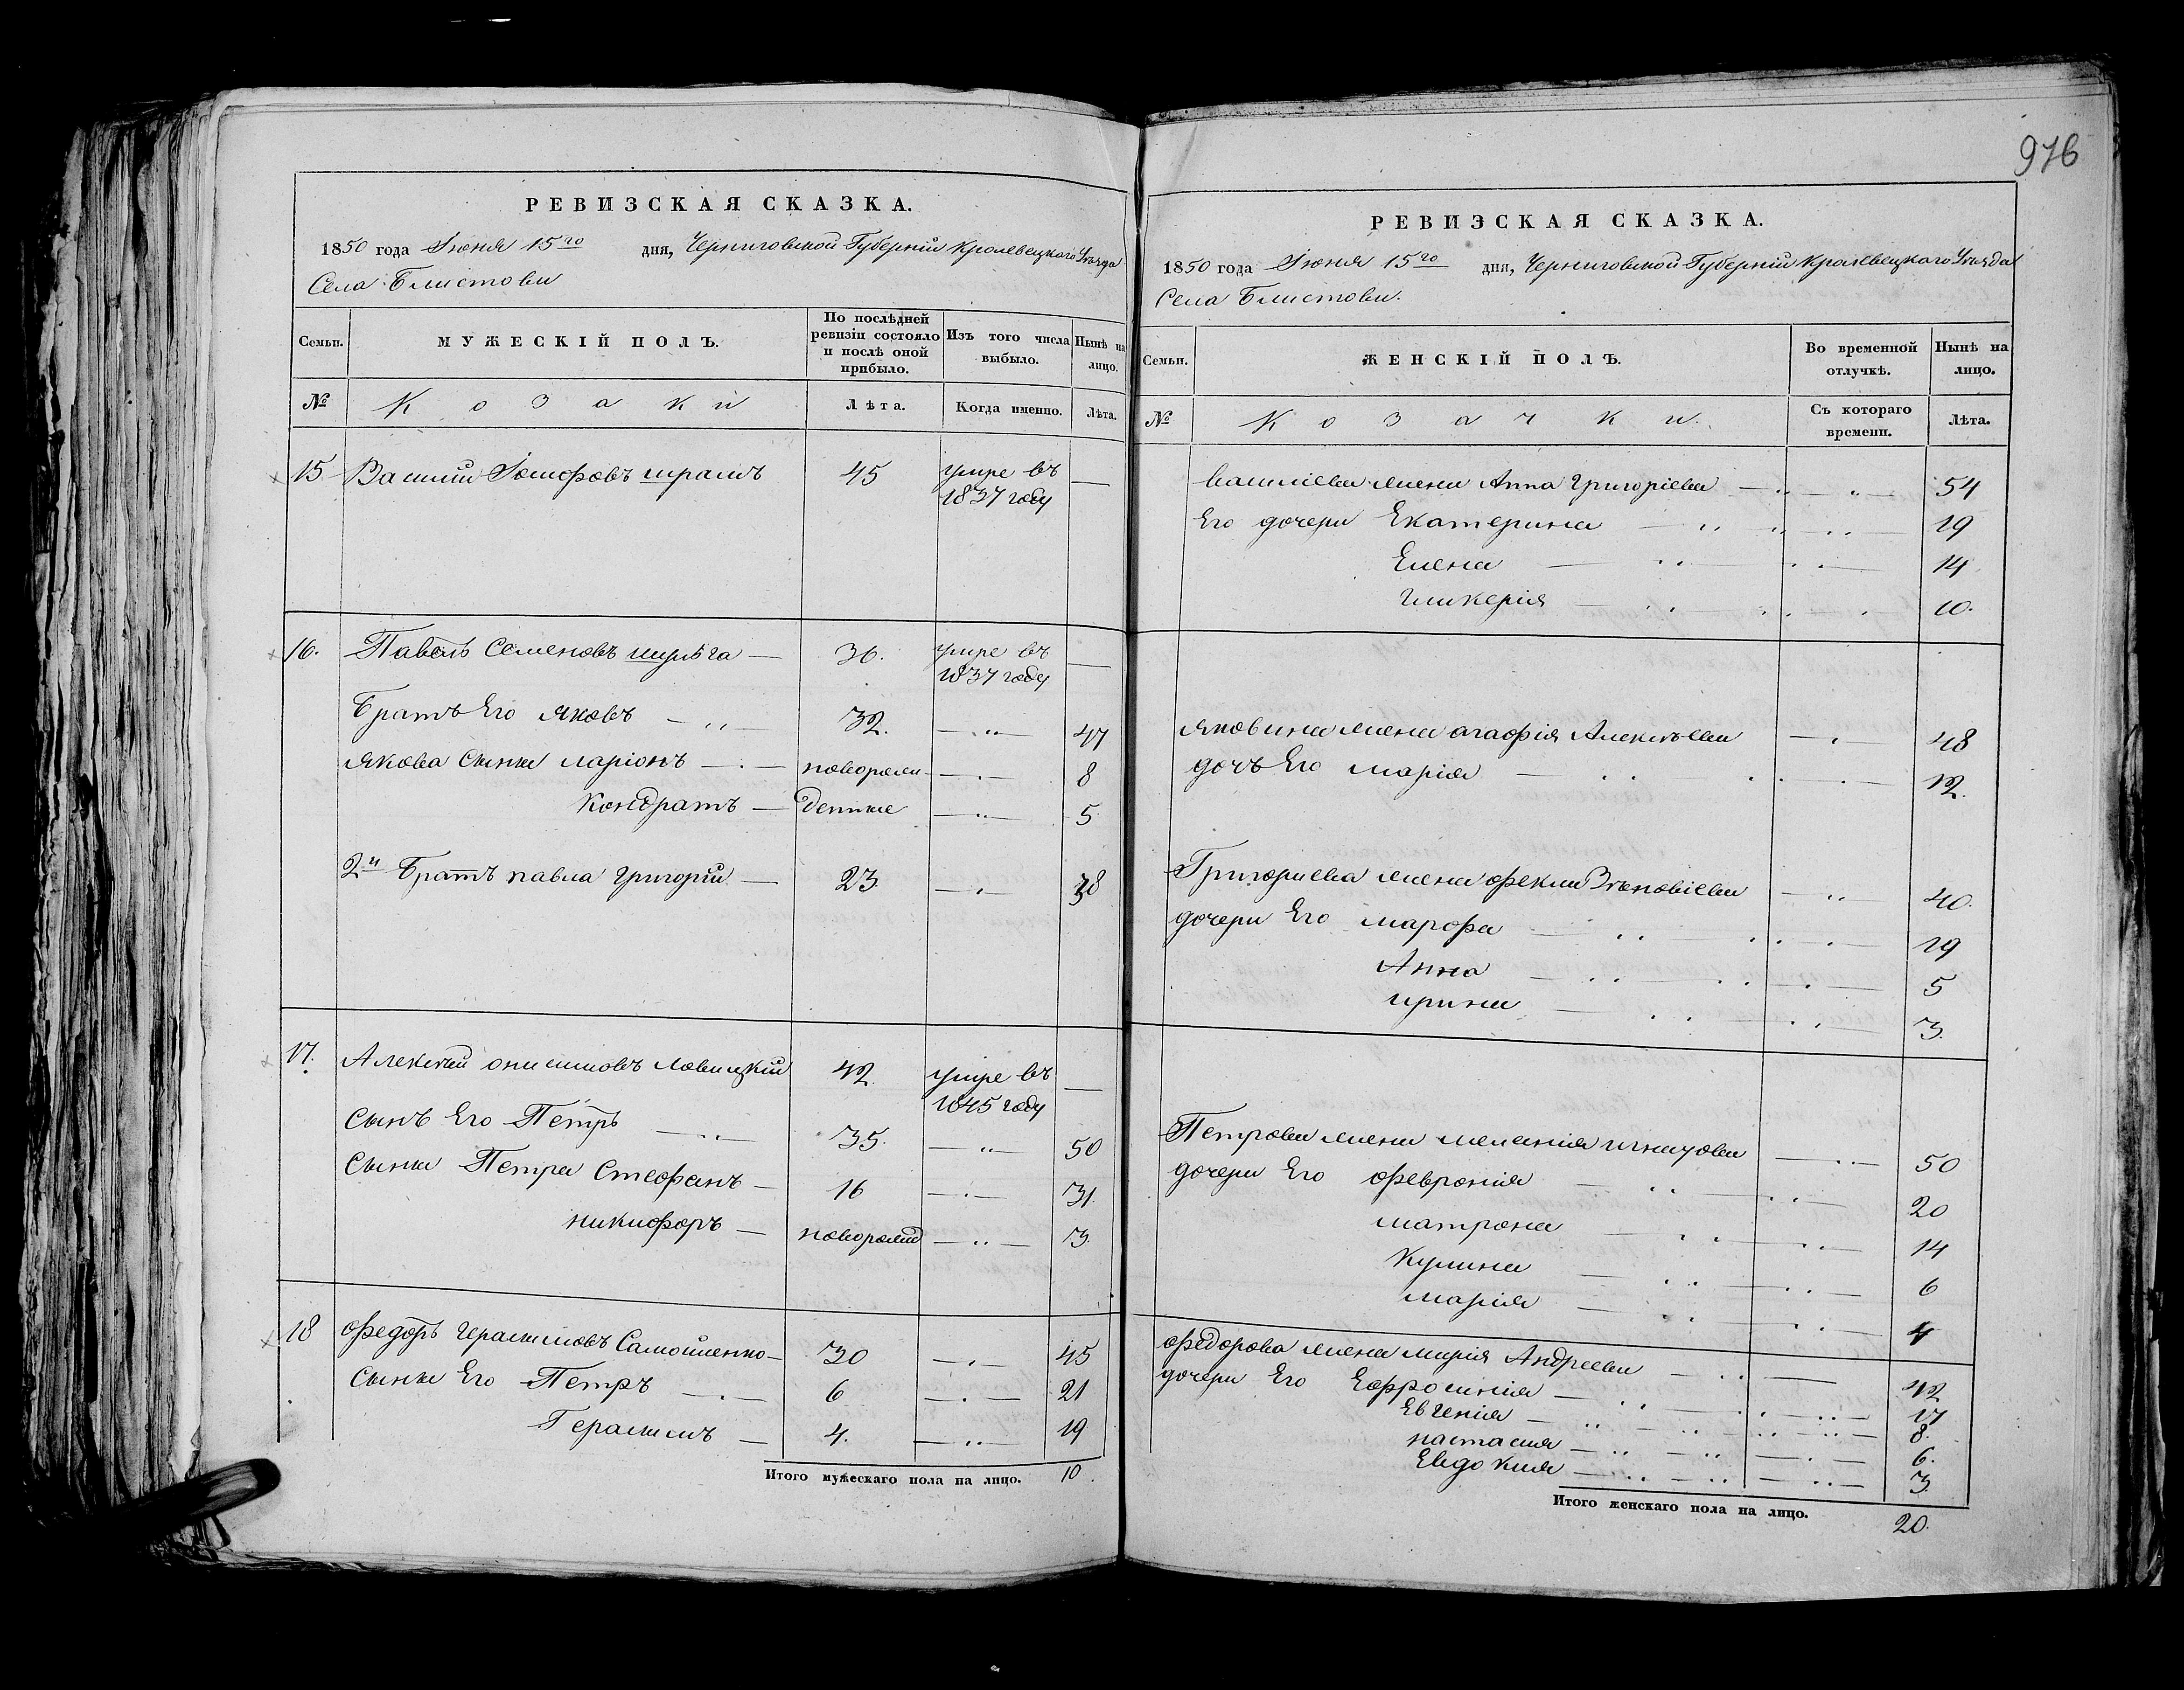 976
РЕВИЗСКАЯ СКАЗКА.
1850 года Іюня 15го дня, Черниговской Губерніи Кролевецкаго Уѣзда
Села Блистови
Семьи. МУЖЕСКІЙ ПОЛЪ. По послѣдней ревизіи состояло и послѣ оной прибыло. Изъ того числа выбыло. Нынѣ на лицо.
№ Козаки Лѣта. Когда именно. Лѣта.
15 Василій Іосифовъ шрамъ 45 умре въ 1837 году —
16. Павелъ Семеновъ шуляга — 36. умре въ 1837 году —
Братъ Его Яковъ 32. 47
Якова Сыны ларіонъ новорож- 8
Кондратъ — денные 5
2й Братъ павла Григорій — 23 38
17. Алексѣй онисимовъ Ловицкій 42 умре въ 1845 году —
Сынъ Его Петръ 35. 50
Сыны Петра Стефанъ — 16 31.
никифоръ — новорожд 3.
18 Федоръ Герасимовъ Самойленко — 30 45
Сыны Его Петръ 6 21
Герасимъ — 4. 19
Итого мужескаго пола на лицо. 10.
РЕВИЗСКАЯ СКАЗКА.
1850 года Іюня 15го дня, Черниговской Губерніи Кролевецкаго Уѣзда
Села Блистови.
Семьи. ЖЕНСКІЙ ПОЛЪ. Во временной отлучкѣ. Нынѣ на лицо.
№ Козачки. Съ котораго времени. Лѣта.
Василіева жена Анна Григоріева 54
Его дочери Екатерина 19
Елена 14
Гликерія 10.
Яковина жена агафія Алексѣева 48
дочь Его марія 12.
Григориева жена фекла Зѣновіева 40.
дочери Его марфа 19
Анна 5
ирина 3.
Петрова жена меланія игнатова 50
дочери Его февронія 20
матрона 14
Кулина 6
марія 4
Федорова жена марія Андреева 42
дочери Его Ефросинія 17
Евгенія 8.
настасия 6.
Евдокия 3.
Итого женскаго пола на лицо. 20.